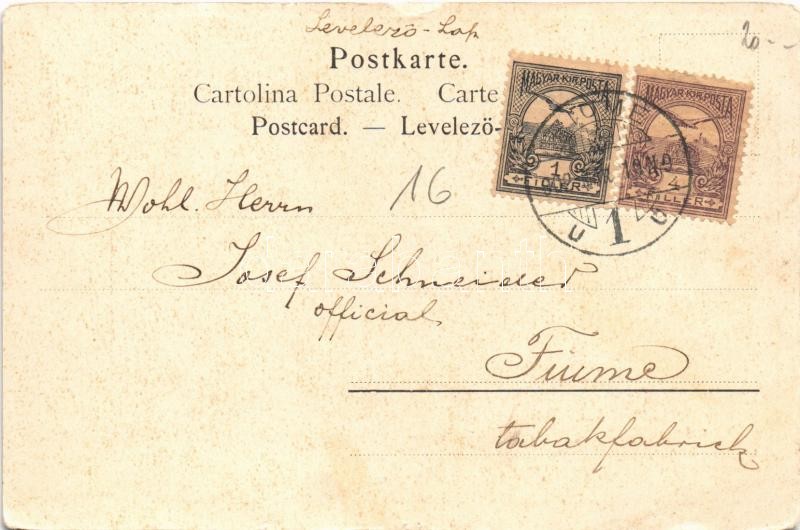 Levelező-Lap
20.--
Postkarte.
Cartolina Postale. Carte
Postcard. — Levelező-
MAGYAR·KIR·POSTA
1
FILLER
MAGYAR·KIR·POSTA
4
FILLER
FIUME
1
16
Wohl. Herrn
Josef Schneider
official
Fiume
tabakfabrick